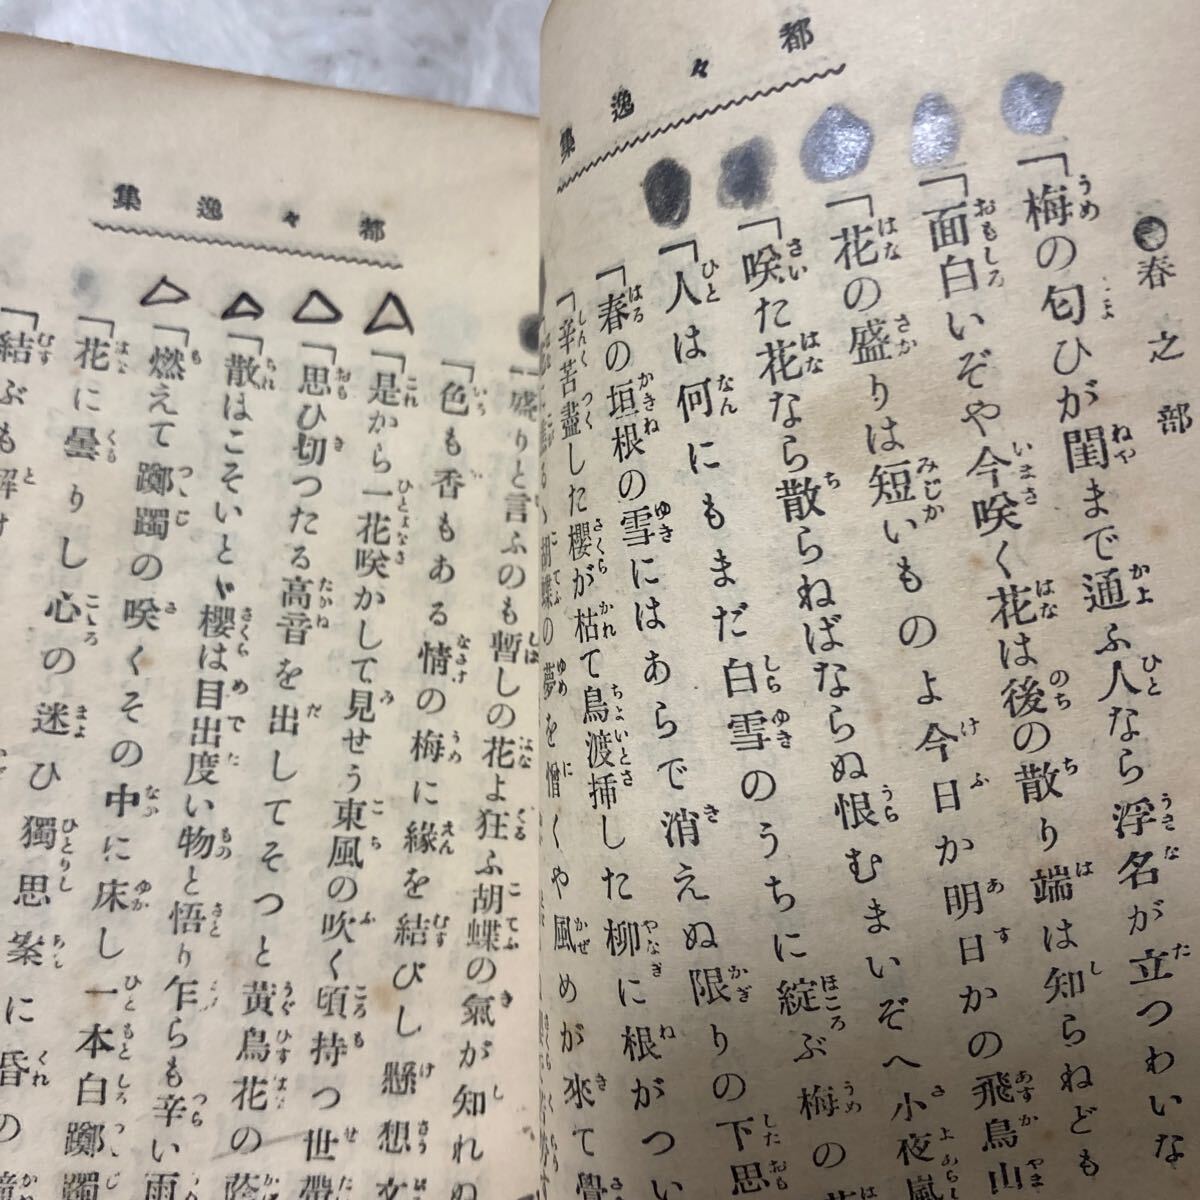 都々逸集
●春之部
「梅の匂ひが閨まで通ふ人なら浮名が立つわいな
「面白いぞや今咲く花は後の散り端は知らねども
「花の盛りは短いものよ今日か明日かの飛鳥山
「咲た花なら散らねばならぬ恨むまいぞへ小夜嵐
「人は何にもまだ白雪のうちに綻ぶ梅の花
「春の垣根の雪にはあらで消えぬ限りの下思
「辛苦盡した櫻が枯て鳥渡挿した柳に根がつい
胡蝶の夢を憎くや風めが來て覺
都々逸集
「盛りと言ふのも暫しの花よ狂ふ胡蝶の氣が知れぬ
「色も香もある情の梅に緣を結びし懸想文
「是から一花咲かして見せう東風の吹く頃持つ世帶
「思ひ切つたる高音を出してそつと黃鳥花の蔭
「散はこそいとゞ櫻は目出度い物と悟り乍らも辛い雨
「燃えて躑躅の咲くその中に床し一本白躑躅
「花に曇りし心の迷ひ獨思案に昏の鐘
「結ぶも解け